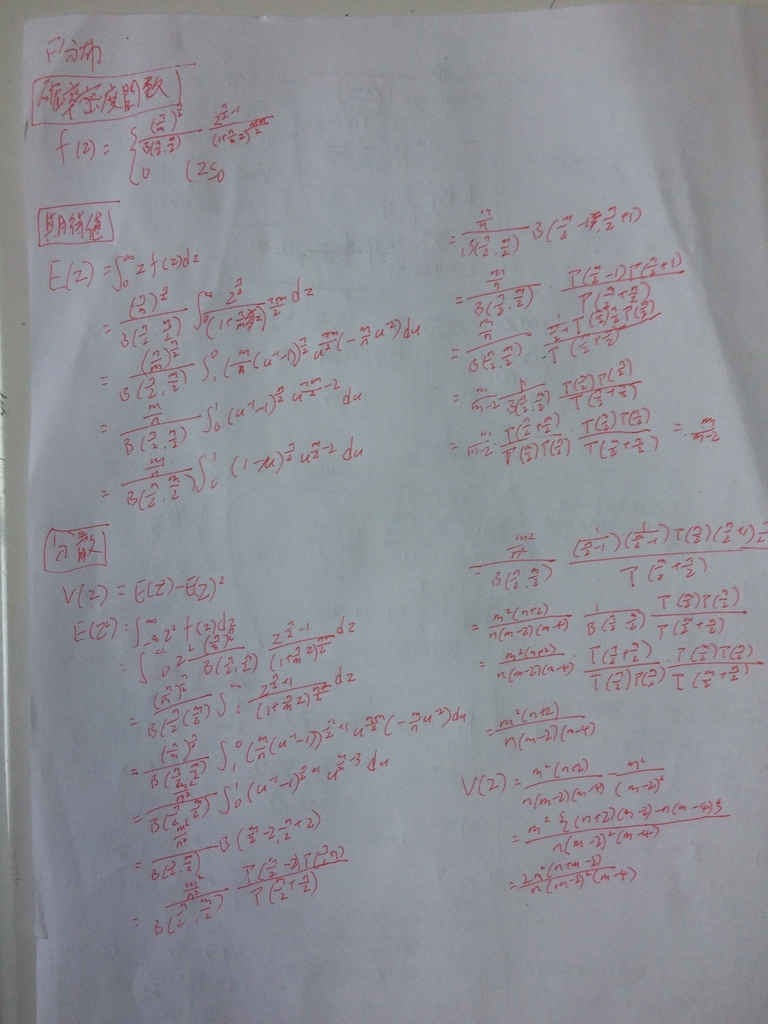 F分布
確率密度関数
f(z) = { (n/m)^{n/2} / B(n/2, m/2) · z^{n/2-1} / (1+n/m z)^{(n+m)/2}
0 (z≤0
期待値
E(z) = ∫_0^∞ z f(z) dz
= (n/m)^{n/2} / B(n/2, m/2) ∫_0^∞ z^{n/2} / (1+n/m z)^{(n+m)/2} dz
= (n/m)^{n/2} / B(n/2, m/2) ∫_1^0 (m/n (u^{-1}-1))^{n/2} u^{(n+m)/2} (-m/n u^{-2}) du
= m/n / B(n/2, m/2) ∫_0^1 (u^{-1}-1)^{n/2} u^{(n+m)/2-2} du
= m/n / B(n/2, m/2) ∫_0^1 (1-u)^{n/2} u^{m/2-2} du
= m/n / B(n/2, m/2) B(m/2-1, n/2+1)
= m/n / B(n/2, m/2) · Γ(m/2-1)Γ(n/2+1) / Γ(m/2+n/2)
= m/n / B(n/2, m/2)
= m/m-2 · 1/B(n/2, m/2) · Γ(m/2)Γ(n/2) / Γ(n/2+m/2)
= m/m-2 · Γ(n/2+m/2) / Γ(n/2)Γ(m/2) · Γ(m/2)Γ(n/2) / Γ(n/2+m/2) = m/m-2
分散
V(z) = E(z²) - E(z)²
E(z²) = ∫_{-∞}^∞ z² f(z) dz
= ∫_0^∞ z² (n/m)^{n/2} / B(n/2, m/2) · z^{n/2-1} / (1+n/m z)^{(n+m)/2} dz
= (n/m)^{n/2} / B(n/2, m/2) ∫_0^∞ z^{n/2+1} / (1+n/m z)^{(n+m)/2} dz
= (n/m)^{n/2} / B(n/2, m/2) ∫_1^0 (m/n (u^{-1}-1))^{n/2+1} u^{(n+m)/2} (-m/n u^{-2}) du
= m²/n² / B(n/2, m/2) ∫_0^1 (u^{-1}-1)^{n/2+1} du
= m²/n² / B(n/2, m/2) B(m/2-2, n/2+2)
= m²/n² / B(n/2, m/2)
= m²/n² / B(n/2, m/2)
= m²(n+2) / n(m-2)(m-4) · 1/B(n/2, m/2) · Γ(m/2)Γ(n/2) / Γ(m/2+n/2)
= m²(n+2) / n(m-2)(m-4) · Γ(n/2+m/2) / Γ(n/2)Γ(m/2) · Γ(m/2)Γ(n/2) / Γ(m/2+n/2)
= m²(n+2) / n(m-2)(m-4)
V(z) = m²(n+2) / n(m-2)(m-4) - m² / (m-2)²
= m² {(n+2)(m-2) - n(m-4)} / n(m-2)²(m-4)
= 2m²(n+m-2) / n(m-2)²(m-4)